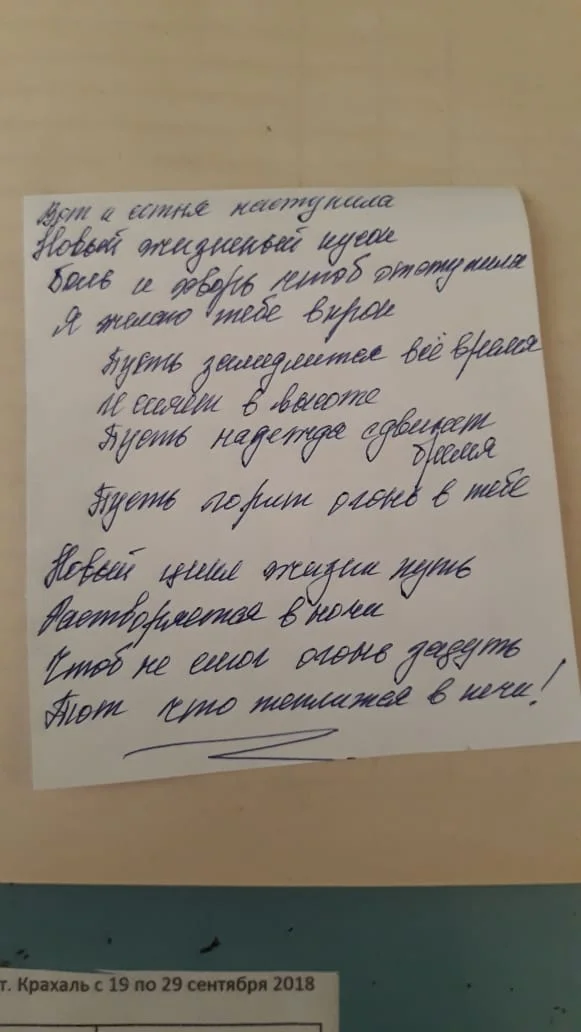 Вот и наступила
Новый жизненный кусок
Боль и хворь чтоб отступила
Я желаю тебе впрок
Пусть замедлится всё время
И сияет в высоте
Пусть надежда
бремя
Пусть горит огонь в тебе
Новый цикл жизни путь
Растворяется в ночи
Чтоб не смог огонь задуть
Тот что теплится в печи!
т. Крахаль с 19 по 29 сентября 2018